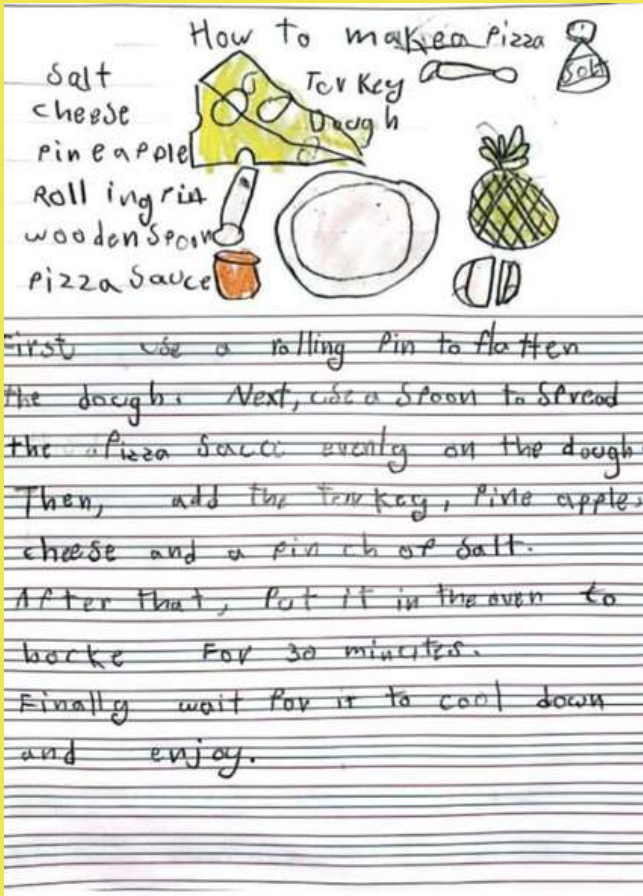 How to make a Pizza
Salt
Turkey
Salt
cheese
Dough
Pineapple
Rolling Pin
wooden Spoon
Pizza Sauce
First use a rolling Pin to flatten
the dough. Next, use a Spoon to Spread
the Pizza Sacci evenly on the dough
Then, add the turkey, Pine apples,
cheese and a Pinch of Salt.
After that, Put it in the oven to
bocke For 30 mincites.
Finally wait for it to cool down
and enjoy.